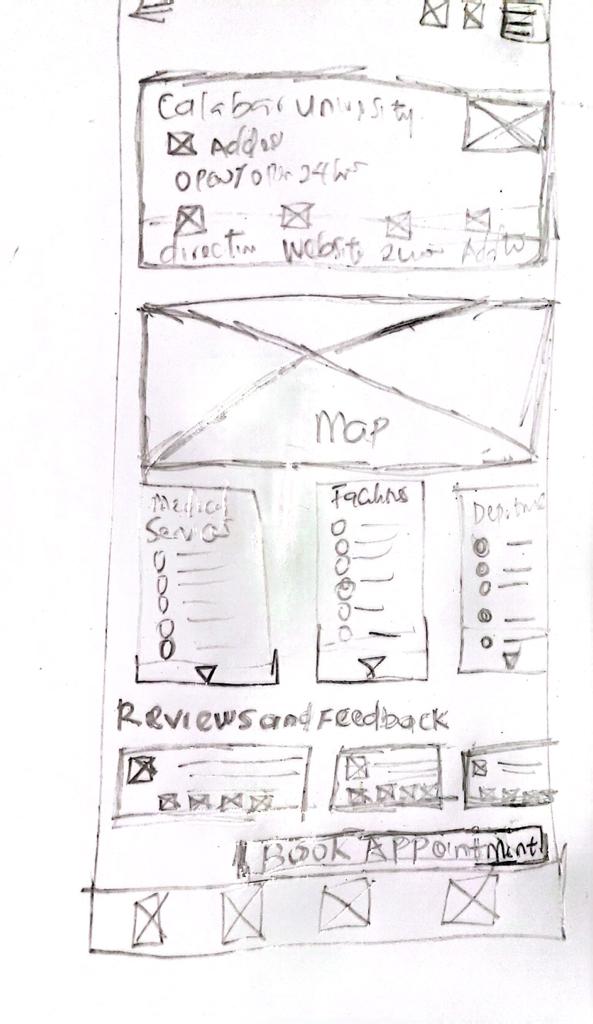 Calabar University
Address
OPEN/ OPEN 24hrs
direction Website
Map
Medical
Services
Facilities
Reviews and Feedback
BOOK APPointment